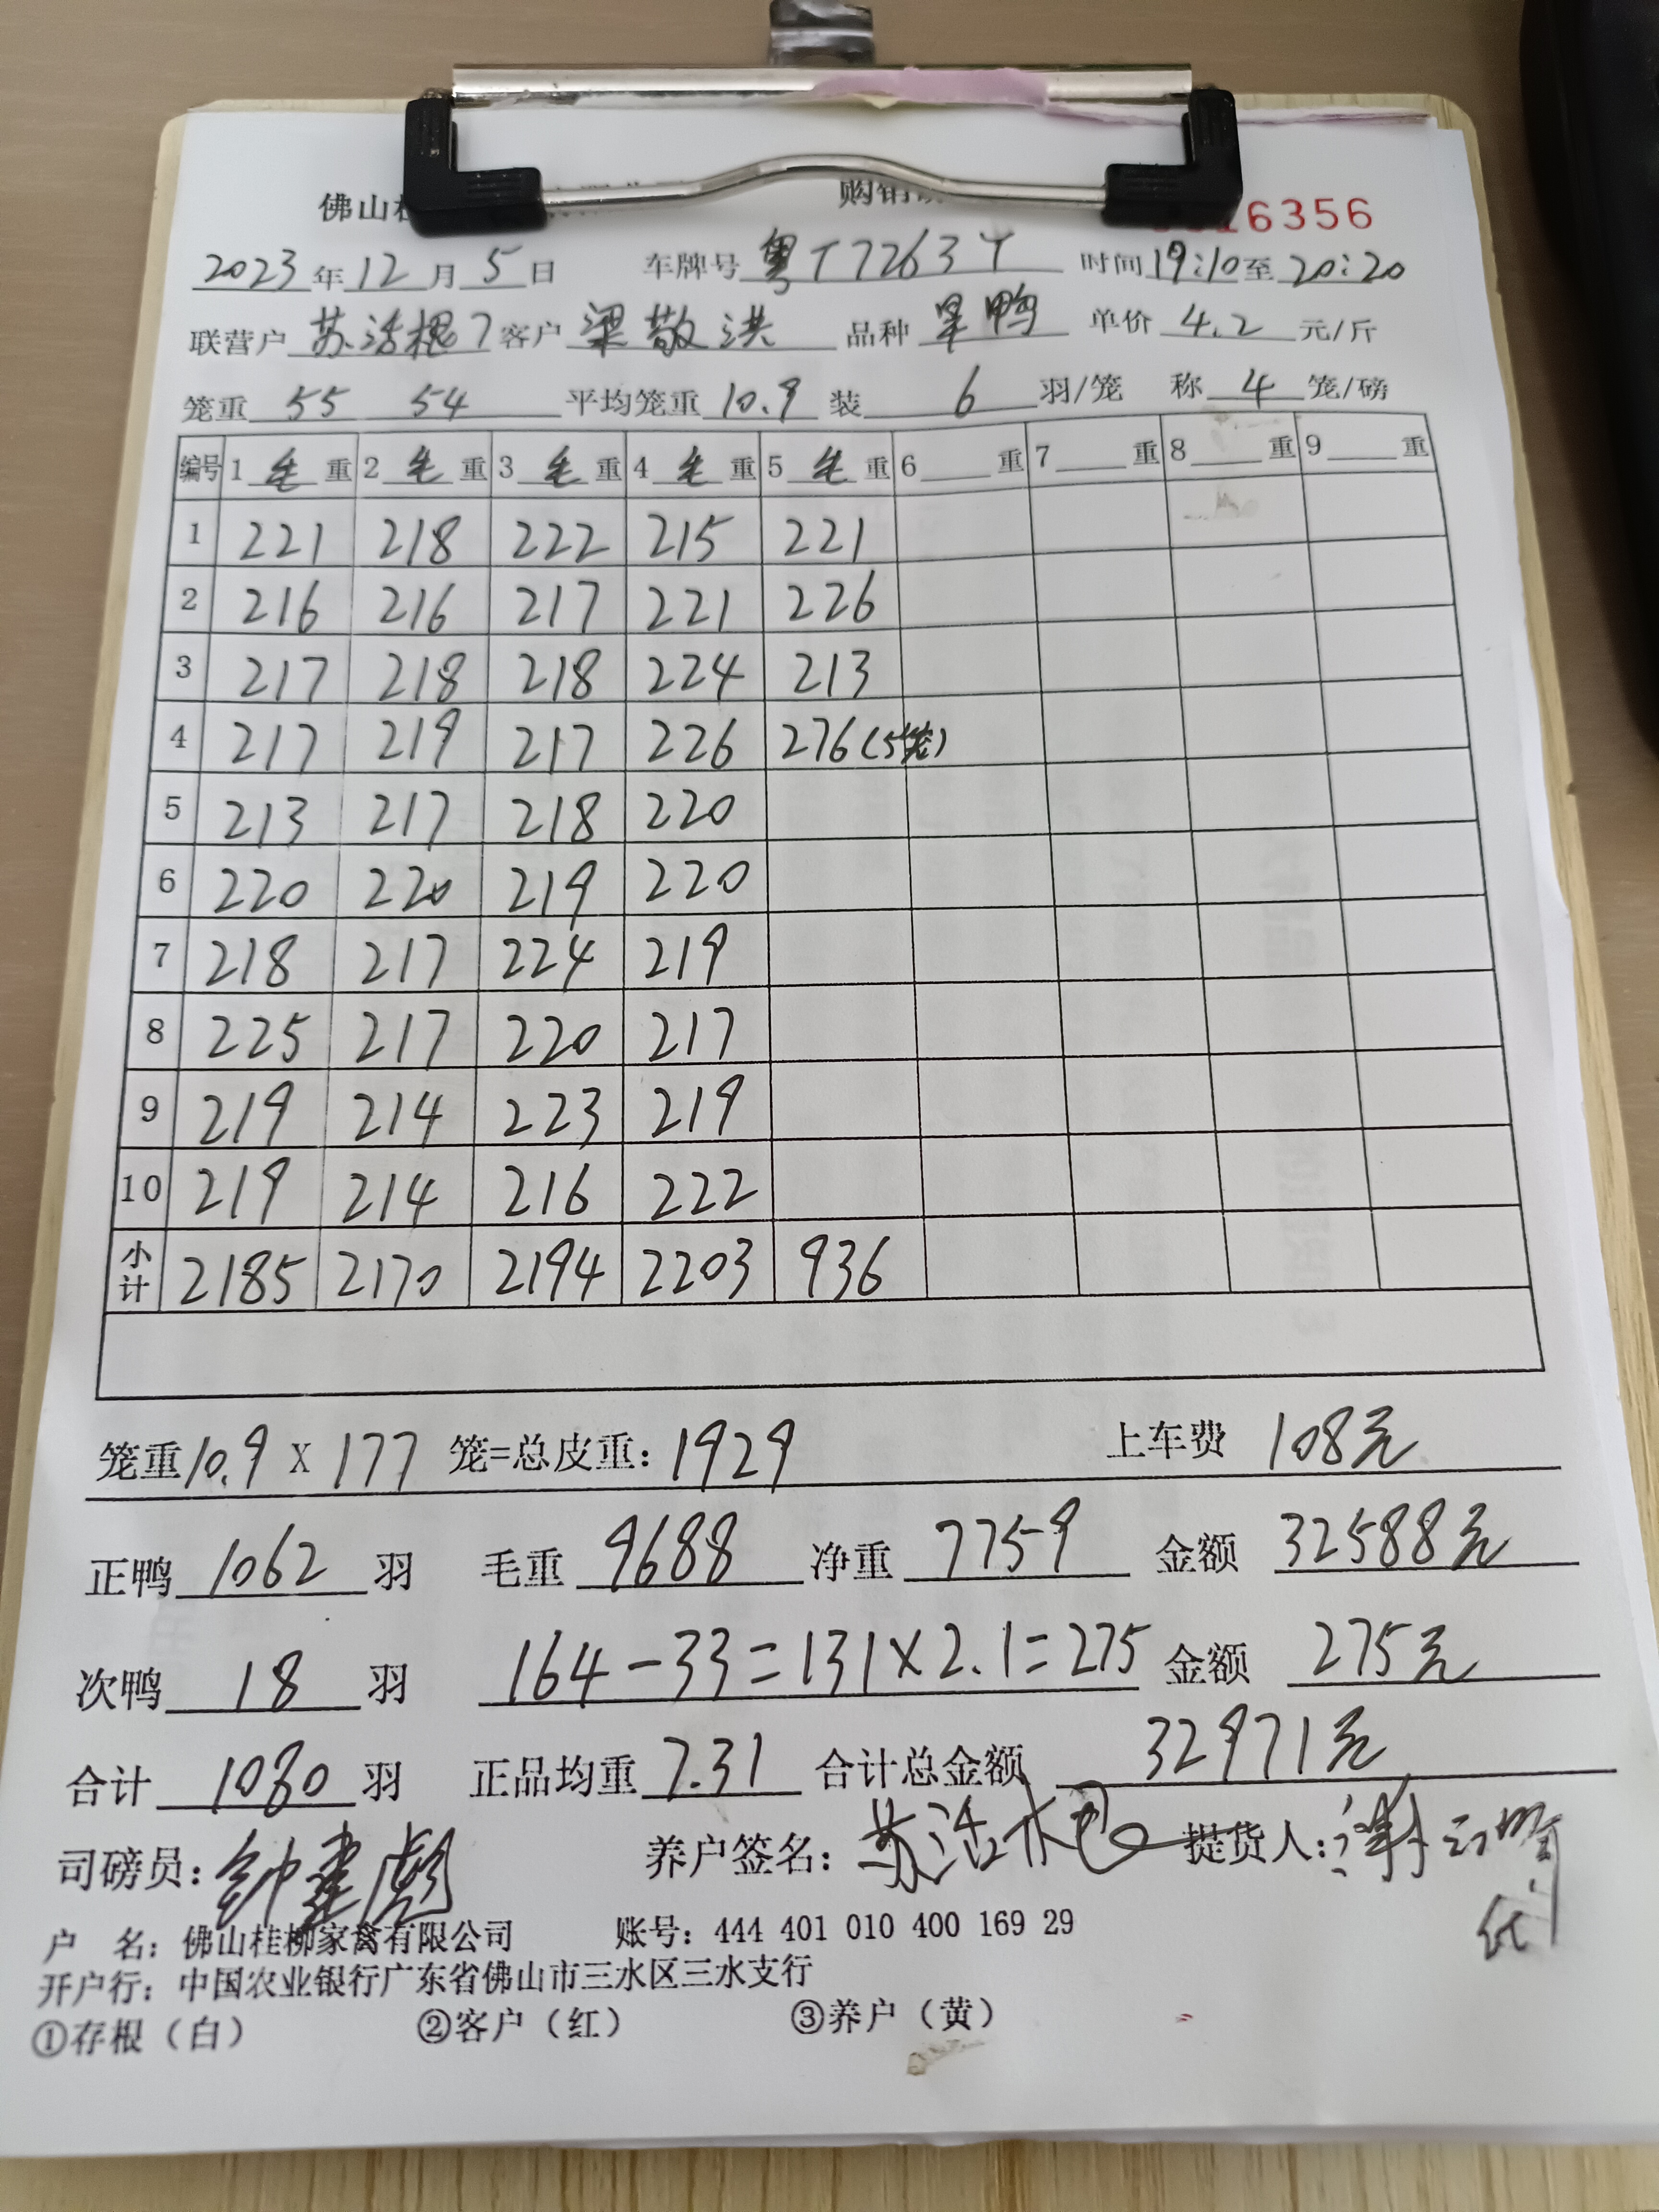 佛山桂 购销
16356
2023年12月5日 车牌号粤T7263Y 时间19:10至20:20
联营户苏活根7客户梁敬洪 品种旱鸭 单价4.2元/斤
笼重 55 54 平均笼重10.9装6羽/笼 称4笼/磅
编号 1毛重 2毛重 3毛重 4毛重 5毛重 6重 7重 8重 9重
1 221 218 222 215 221
2 216 216 217 221 226
3 217 218 218 224 213
4 217 219 217 226 276(5笼)
5 213 217 218 220
6 220 220 219 220
7 218 217 224 219
8 225 217 220 217
9 219 214 223 219
10 219 214 216 222
小计 2185 2170 2194 2203 936
笼重10.9X177笼=总皮重:1929 上车费 108元
正鸭1062羽 毛重9688净重7759 金额32588元
次鸭18羽 164-33=131×2.1=275 金额275元
合计1080羽 正品均重7.31合计总金额32971元
司磅员:钟建彪 养户签名:苏活根 提货人:
代
户 名:佛山桂柳家禽有限公司 账号:444 401 010 400 169 29
开户行:中国农业银行广东省佛山市三水区三水支行
①存根(白) ②客户(红) ③养户(黄)